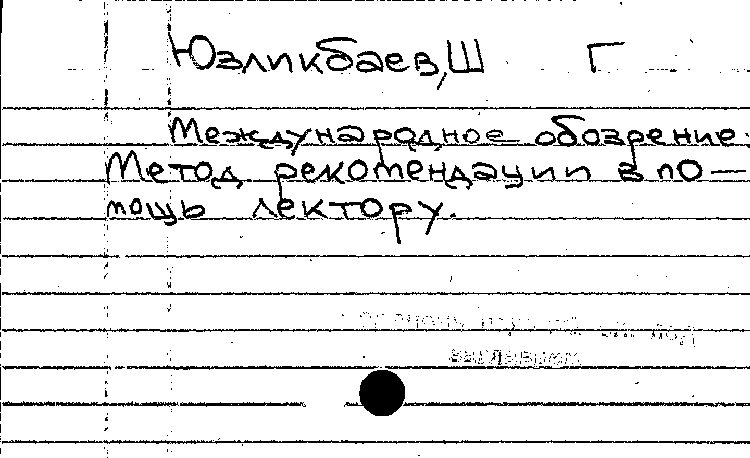 Юзликбаев, Ш Г
Международное обозрение:
Метод. рекомендации в по-
мощь лектору.